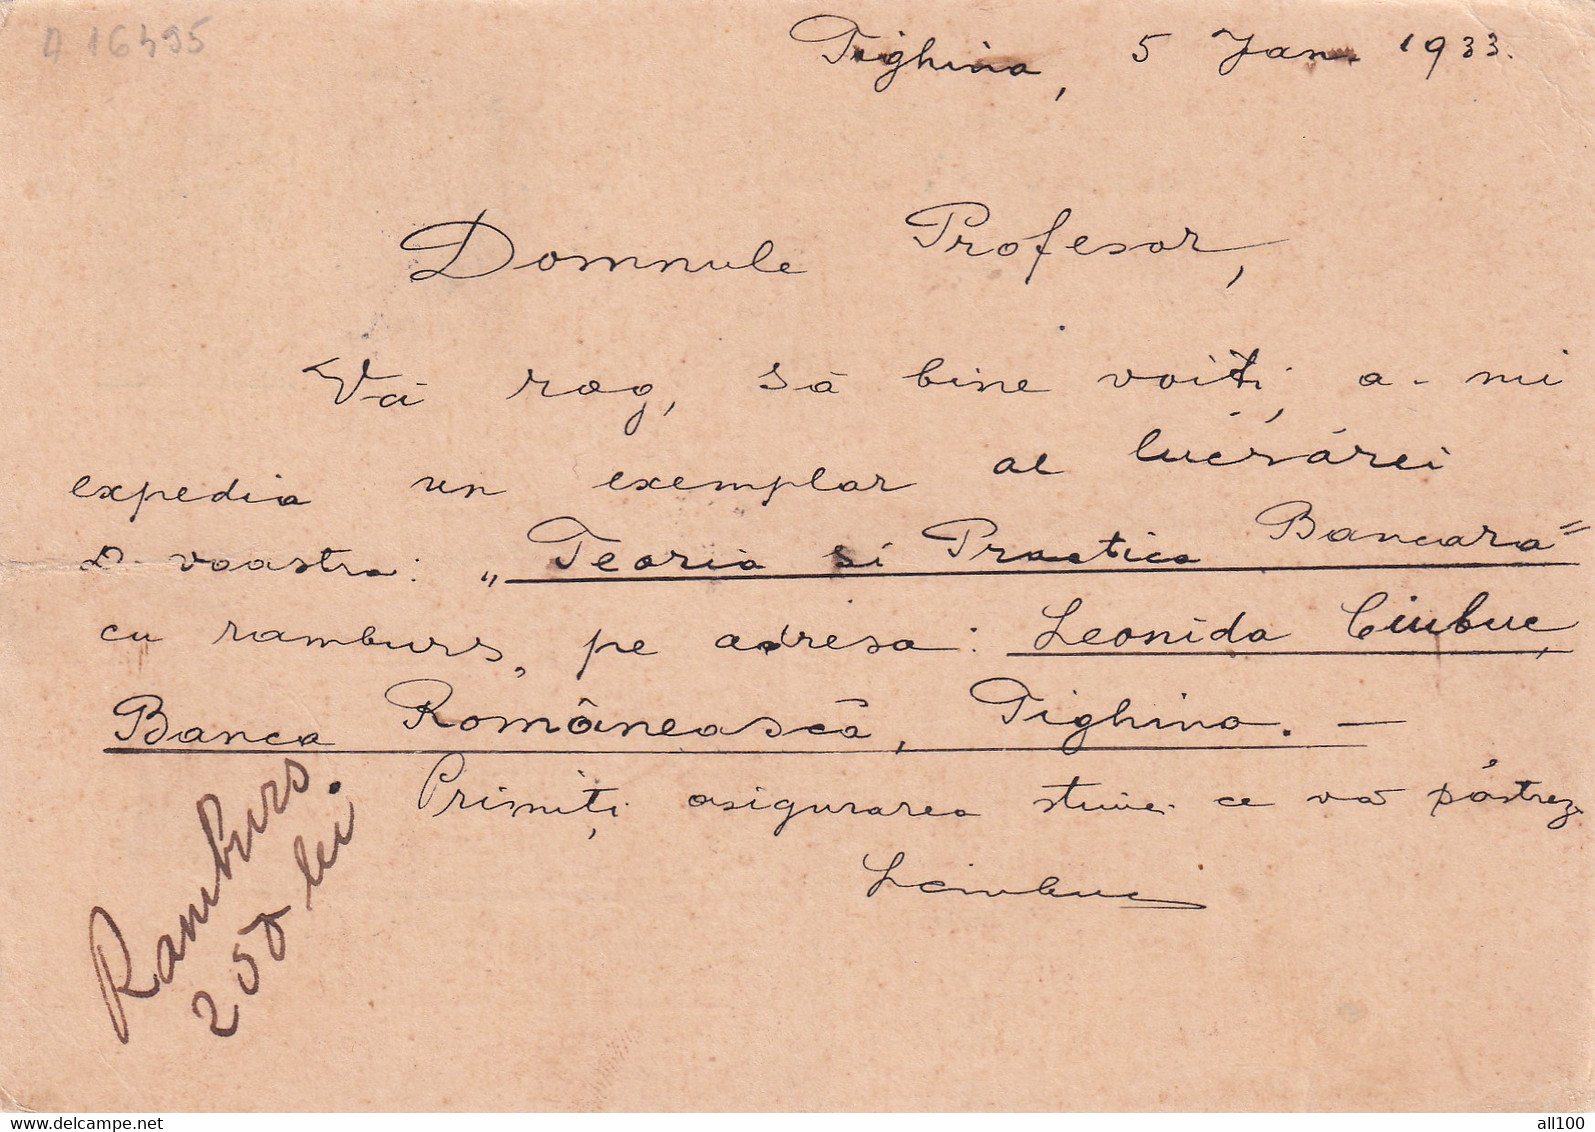 A 16495
Tighina, 5 Jan. 1933.
Domnule Profesor,
Vă rog, să bine voiți, a-mi
expedia un exemplar al lucrărei
D-voastra: „Teoria si Practica Bancara"
cu ramburs, pe adresa: Leonida Ciubuc,
Banca Românească, Tighina. —
Primiți asigurarea stimei ce vă păstrez
LCiubuc
Ramburs
250 lei
www.delcampe.net
all100